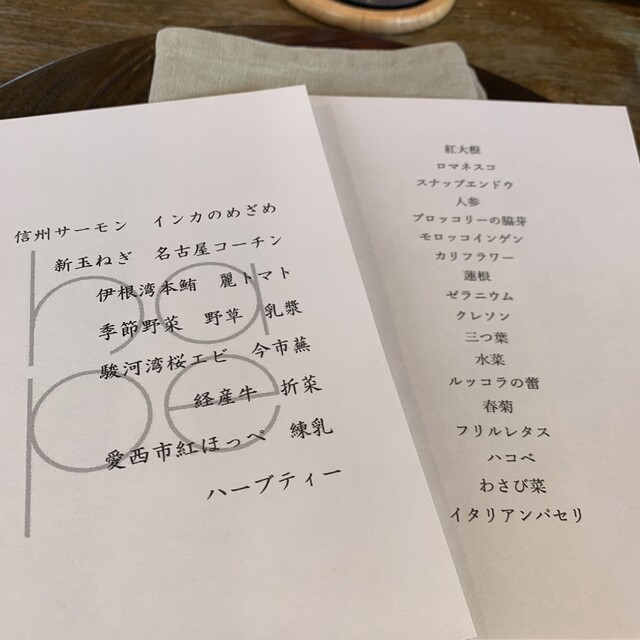 信州サーモン　インカのめざめ
新玉ねぎ　名古屋コーチン
伊根湾本鮪　麗トマト
季節野菜　野草　乳漿
駿河湾桜エビ　今市蕪
経産牛　折菜
愛西市紅ほっぺ　練乳
ハーブティー
ha
pe
紅大根
ロマネスコ
スナップエンドウ
人参
ブロッコリーの脇芽
モロッコインゲン
カリフラワー
蓮根
ゼラニウム
クレソン
三つ葉
水菜
ルッコラの蕾
春菊
フリルレタス
ハコベ
わさび菜
イタリアンパセリ